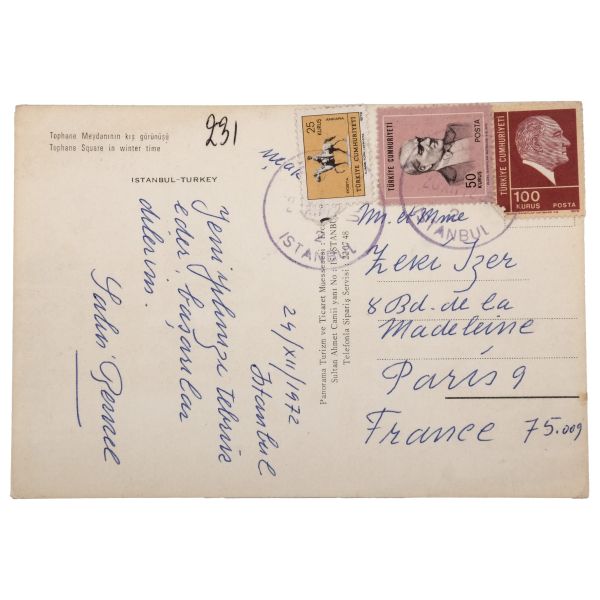 Tophane Meydanının kış görünüşü
Tophane Square in winter time
ISTANBUL-TURKEY
231
uçak
24/XII/1972
Istanbul
Yeni yılınızı tebrik
eder, başarılar
dilerim.
Panorama Turizm ve Ticaret Müessesesi :
Sultan Ahmet Camii yanı No : İSTANBUL
Telefonla Sipariş Servisi : 22 07 48
25
KURUŞ
ANKARA
TÜRKİYE CUMHURİYETİ
POSTA
TÜRKİYE CUMHURİYETİ
50
KURUŞ
POSTA
TÜRKİYE CUMHURİYETİ
100
KURUŞ
POSTA
ISTANBUL
STANBUL
M. et Mme
Zeki Izer
8 Bd. de la
Madeleine
Paris 9
France 75.009